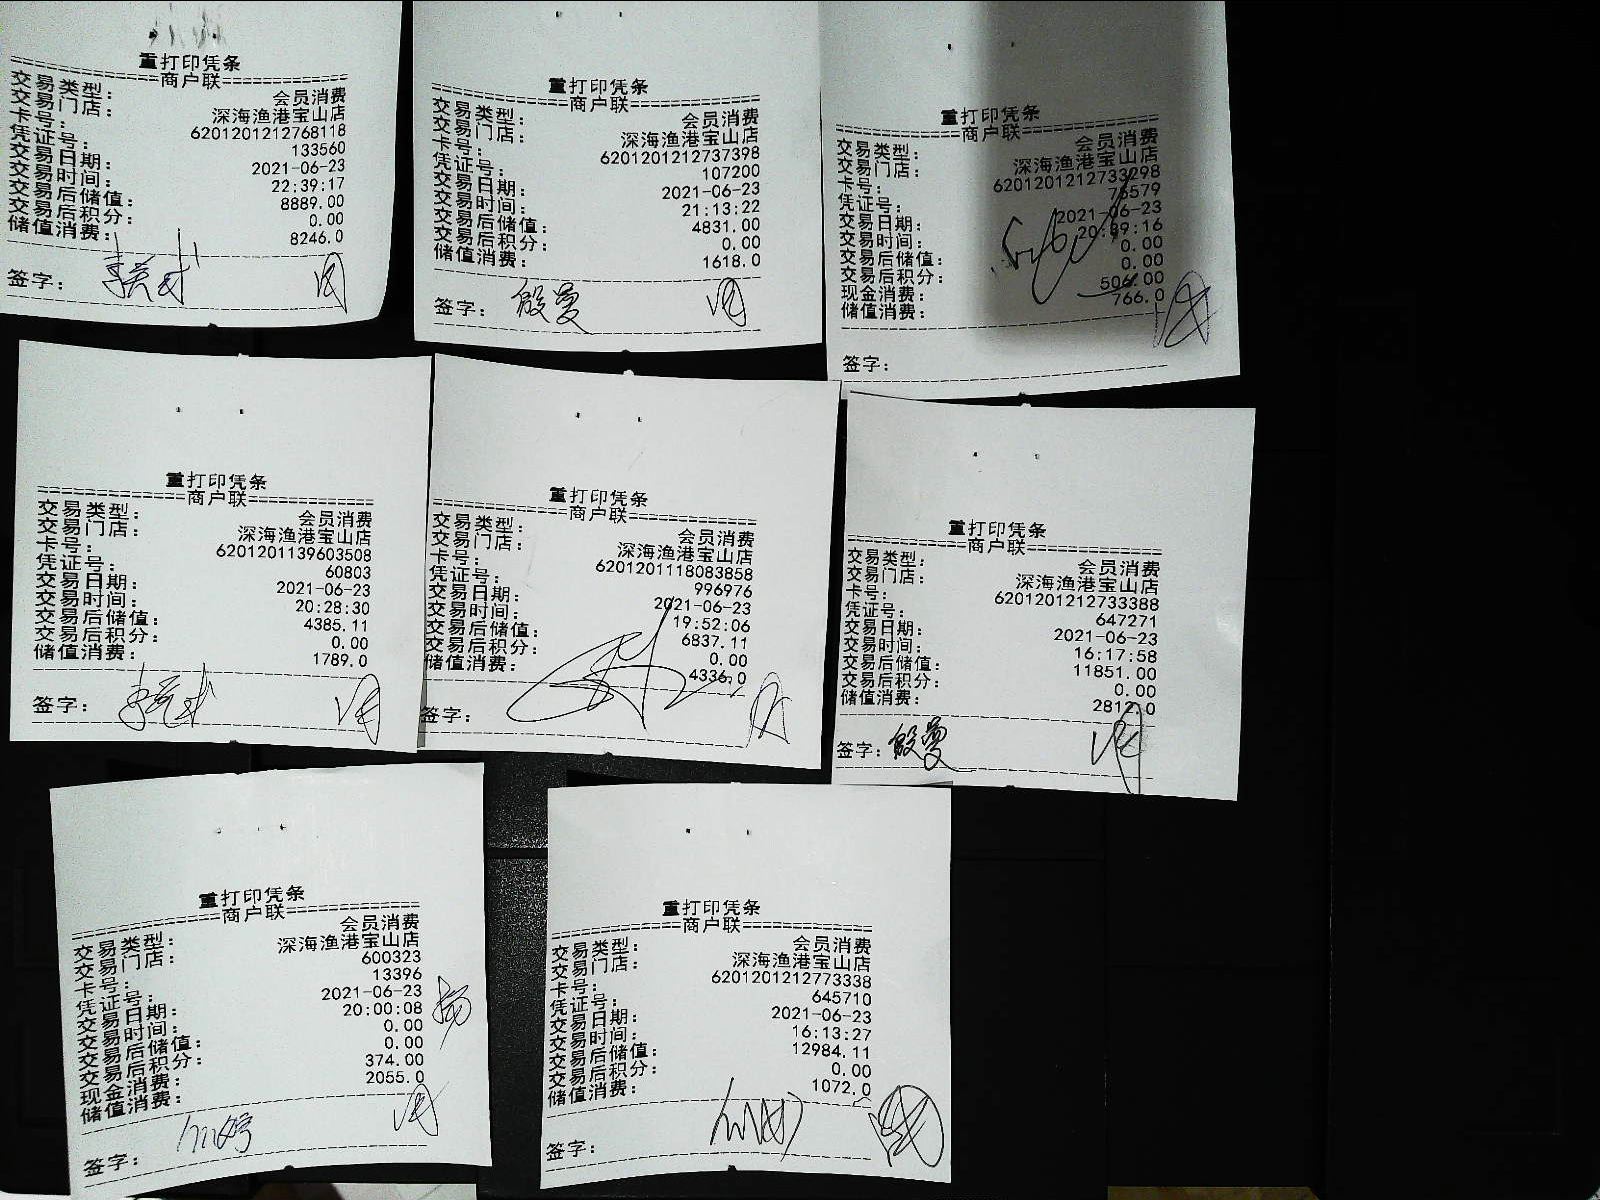 重打印凭条
==========商户联==========
交易类型： 会员消费
交易门店： 深海渔港宝山店
卡号： 6201201212768118
凭证号： 133560
交易日期： 2021-06-23
交易时间： 22:39:17
交易后储值： 8889.00
交易后积分： 0.00
储值消费： 8246.0
签字：
重打印凭条
==========商户联==========
交易类型： 会员消费
交易门店： 深海渔港宝山店
卡号： 6201201212737398
凭证号： 107200
交易日期： 2021-06-23
交易时间： 21:13:22
交易后储值： 4831.00
交易后积分： 0.00
储值消费： 1618.0
签字： 殷曼
重打印凭条
==========商户联==========
交易类型： 会员消费
交易门店： 深海渔港宝山店
卡号： 6201201212733298
凭证号： 75579
交易日期： 2021-06-23
交易时间： 20:39:16
交易后储值： 0.00
交易后积分： 0.00
现金消费： 506.00
储值消费： 766.0
签字：
重打印凭条
==========商户联==========
交易类型： 会员消费
交易门店： 深海渔港宝山店
卡号： 6201201139603508
凭证号： 60803
交易日期： 2021-06-23
交易时间： 20:28:30
交易后储值： 4385.11
交易后积分： 0.00
储值消费： 1789.0
签字：
重打印凭条
==========商户联==========
交易类型： 会员消费
交易门店： 深海渔港宝山店
卡号： 6201201118083858
凭证号： 996976
交易日期： 2021-06-23
交易时间： 19:52:06
交易后储值： 6837.11
交易后积分： 0.00
储值消费： 4336.0
签字：
重打印凭条
==========商户联==========
交易类型： 会员消费
交易门店： 深海渔港宝山店
卡号： 6201201212733388
凭证号： 647271
交易日期： 2021-06-23
交易时间： 16:17:58
交易后储值： 11851.00
交易后积分： 0.00
储值消费： 2812.0
签字： 殷曼
重打印凭条
==========商户联==========
交易类型： 会员消费
交易门店： 深海渔港宝山店
卡号： 600323
凭证号： 13396
交易日期： 2021-06-23
交易时间： 20:00:08
交易后储值： 0.00
交易后积分： 0.00
现金消费： 374.00
储值消费： 2055.0
签字：
重打印凭条
==========商户联==========
交易类型： 会员消费
交易门店： 深海渔港宝山店
卡号： 6201201212773338
凭证号： 645710
交易日期： 2021-06-23
交易时间： 16:13:27
交易后储值： 12984.11
交易后积分： 0.00
储值消费： 1072.0
签字：